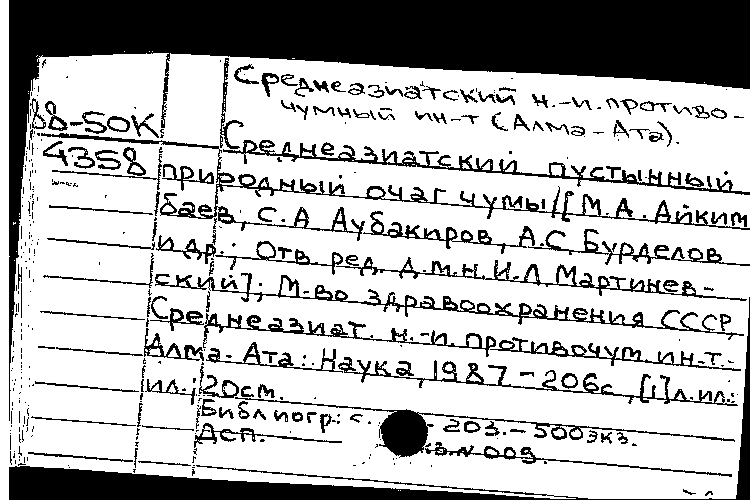 Среднеазиатский н.-и. противо-
чумный ин-т (Алма-Ата).
88-50К
4358
Среднеазиатский пустынный
природный очаг чумы / [М.А. Айким
баев, С.А Аубакиров, А.С. Бурделов
и др.; Отв. ред. д.м.н. И.Л. Мартинев-
ский]; М-во здравоохранения СССР,
Среднеазиат. н.-и. противочум. ин-т.-
Алма-Ата: Наука, 1987 - 206с., [1] л. ил.:
ил.; 20см.
Библиогр.: с. - 203. - 500экз.
Деп. N 009.